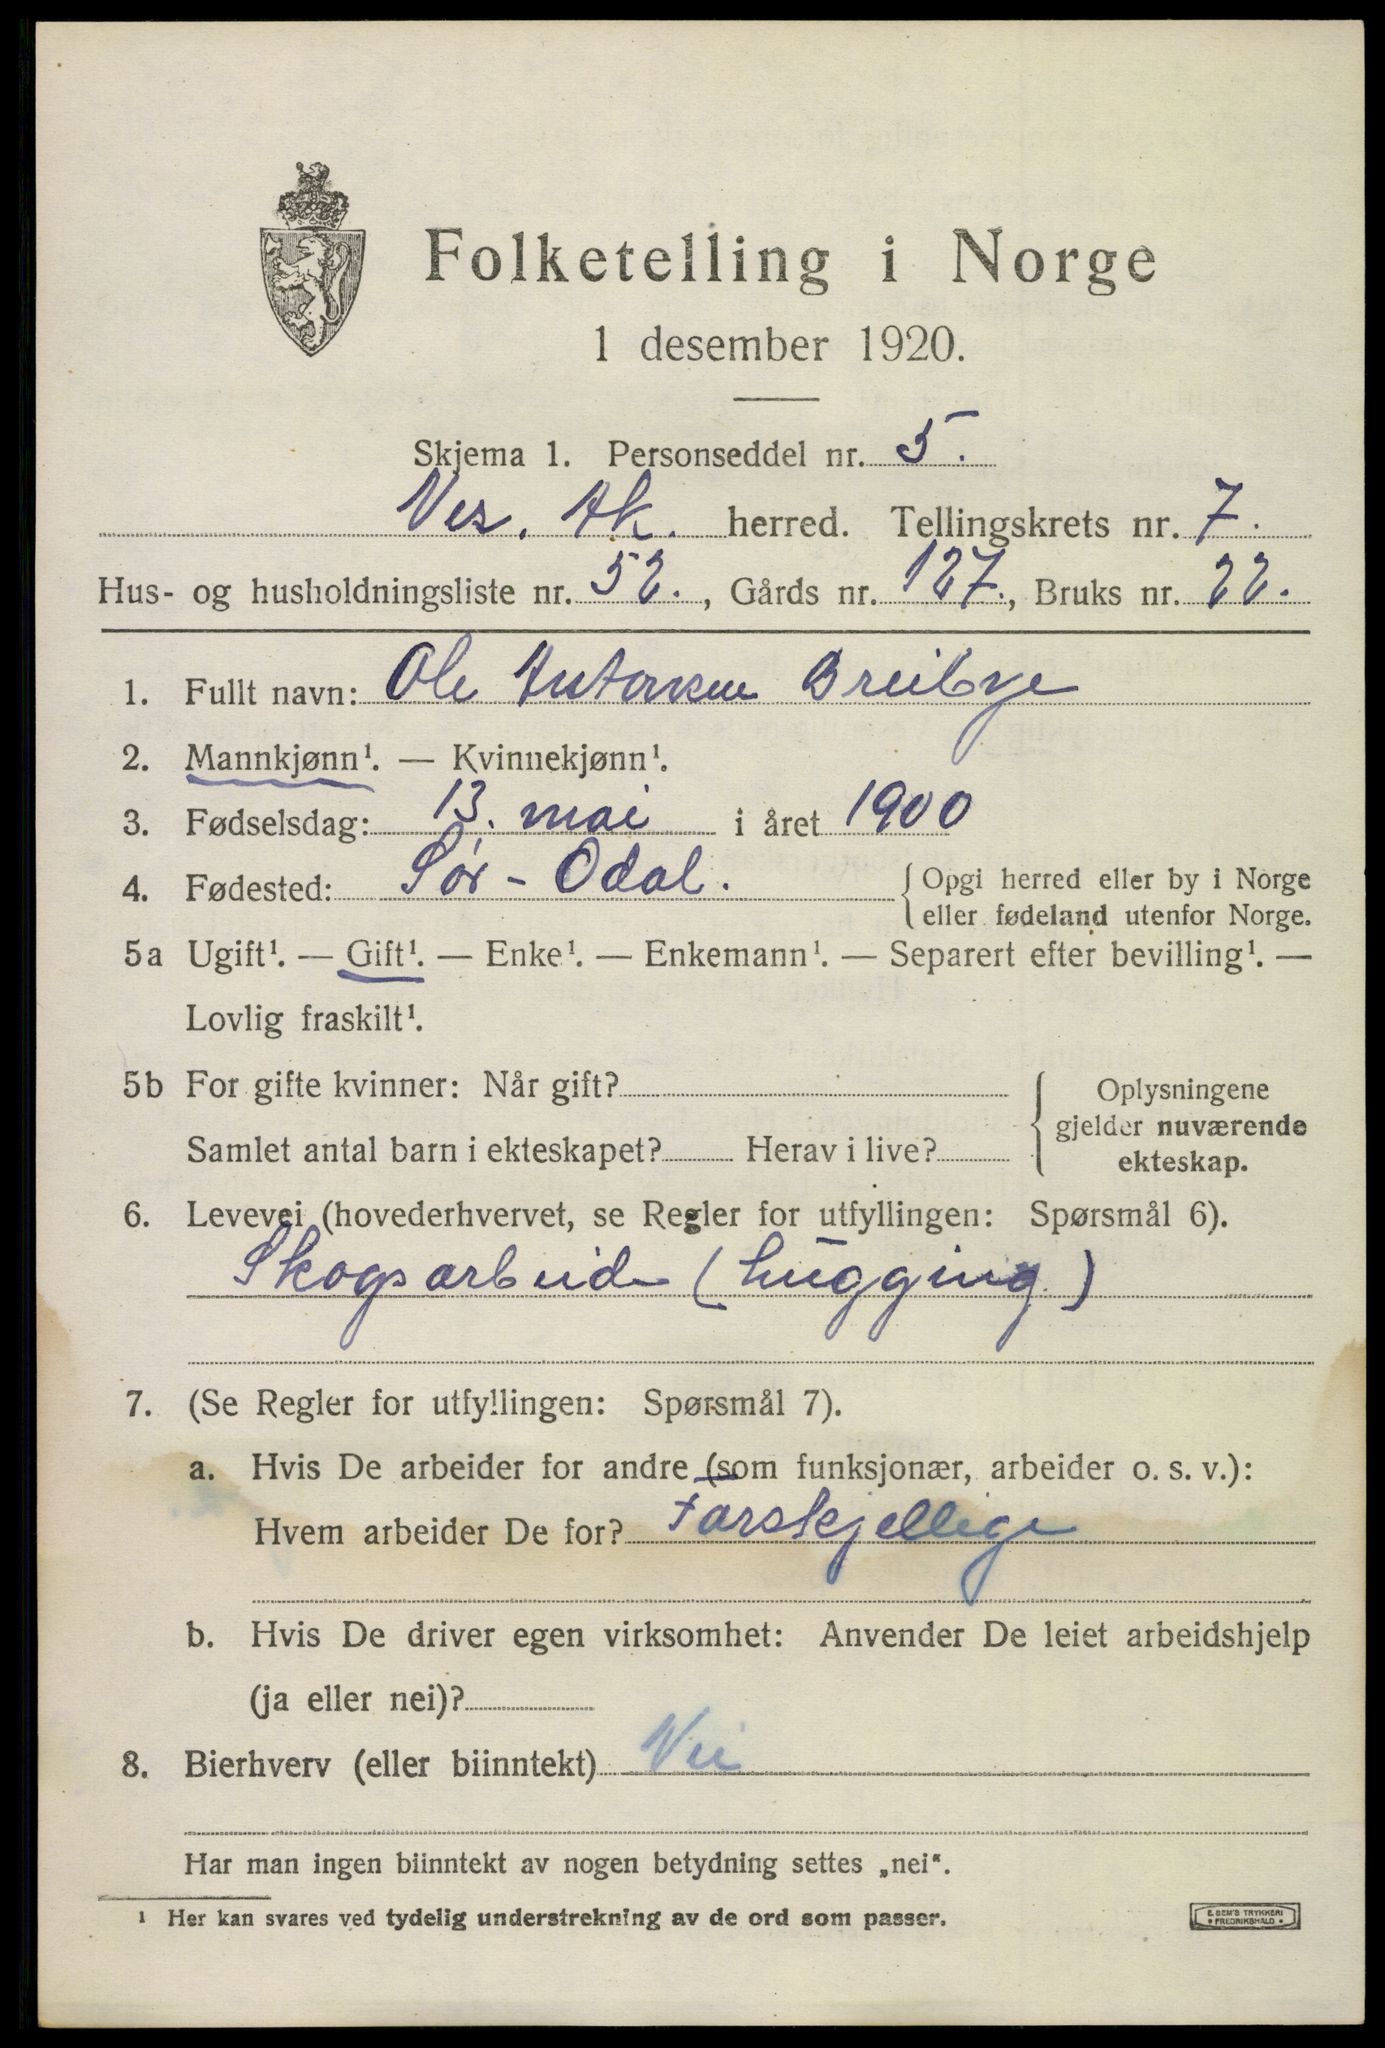 Folketelling i Norge
1 desember 1920.
Skjema 1. Personseddel nr. 5.
Nes. Ak. herred. Tellingskrets nr. 7.
Hus- og husholdningsliste nr. 52., Gårds nr. 127., Bruks nr. 22.
1. Fullt navn: Ole Antonsen Breibye
2. Mannkjønn¹. — Kvinnekjønn¹.
3. Fødselsdag: 13. mai i året 1900
4. Fødested: Sør-Odal. { Opgi herred eller by i Norge
eller fødeland utenfor Norge.
5a Ugift¹. — Gift¹. — Enke¹. — Enkemann¹. — Separert efter bevilling¹. —
Lovlig fraskilt¹.
5b For gifte kvinner: Når gift?
Samlet antal barn i ekteskapet? Herav i live?
Oplysningene
gjelder nuværende
ekteskap.
6. Levevei (hovederhvervet, se Regler for utfyllingen: Spørsmål 6).
Skogsarbeide (hugging)
7. (Se Regler for utfyllingen: Spørsmål 7).
a. Hvis De arbeider for andre (som funksjonær, arbeider o. s. v.):
Hvem arbeider De for? Forskjellige
b. Hvis De driver egen virksomhet: Anvender De leiet arbeidshjelp
(ja eller nei)?
8. Bierhverv (eller biinntekt) Nei
Har man ingen biinntekt av nogen betydning settes „nei“.
¹ Her kan svares ved tydelig understrekning av de ord som passer.
E. SEM'S TRYKKERI
• FREDRIKSHALD •